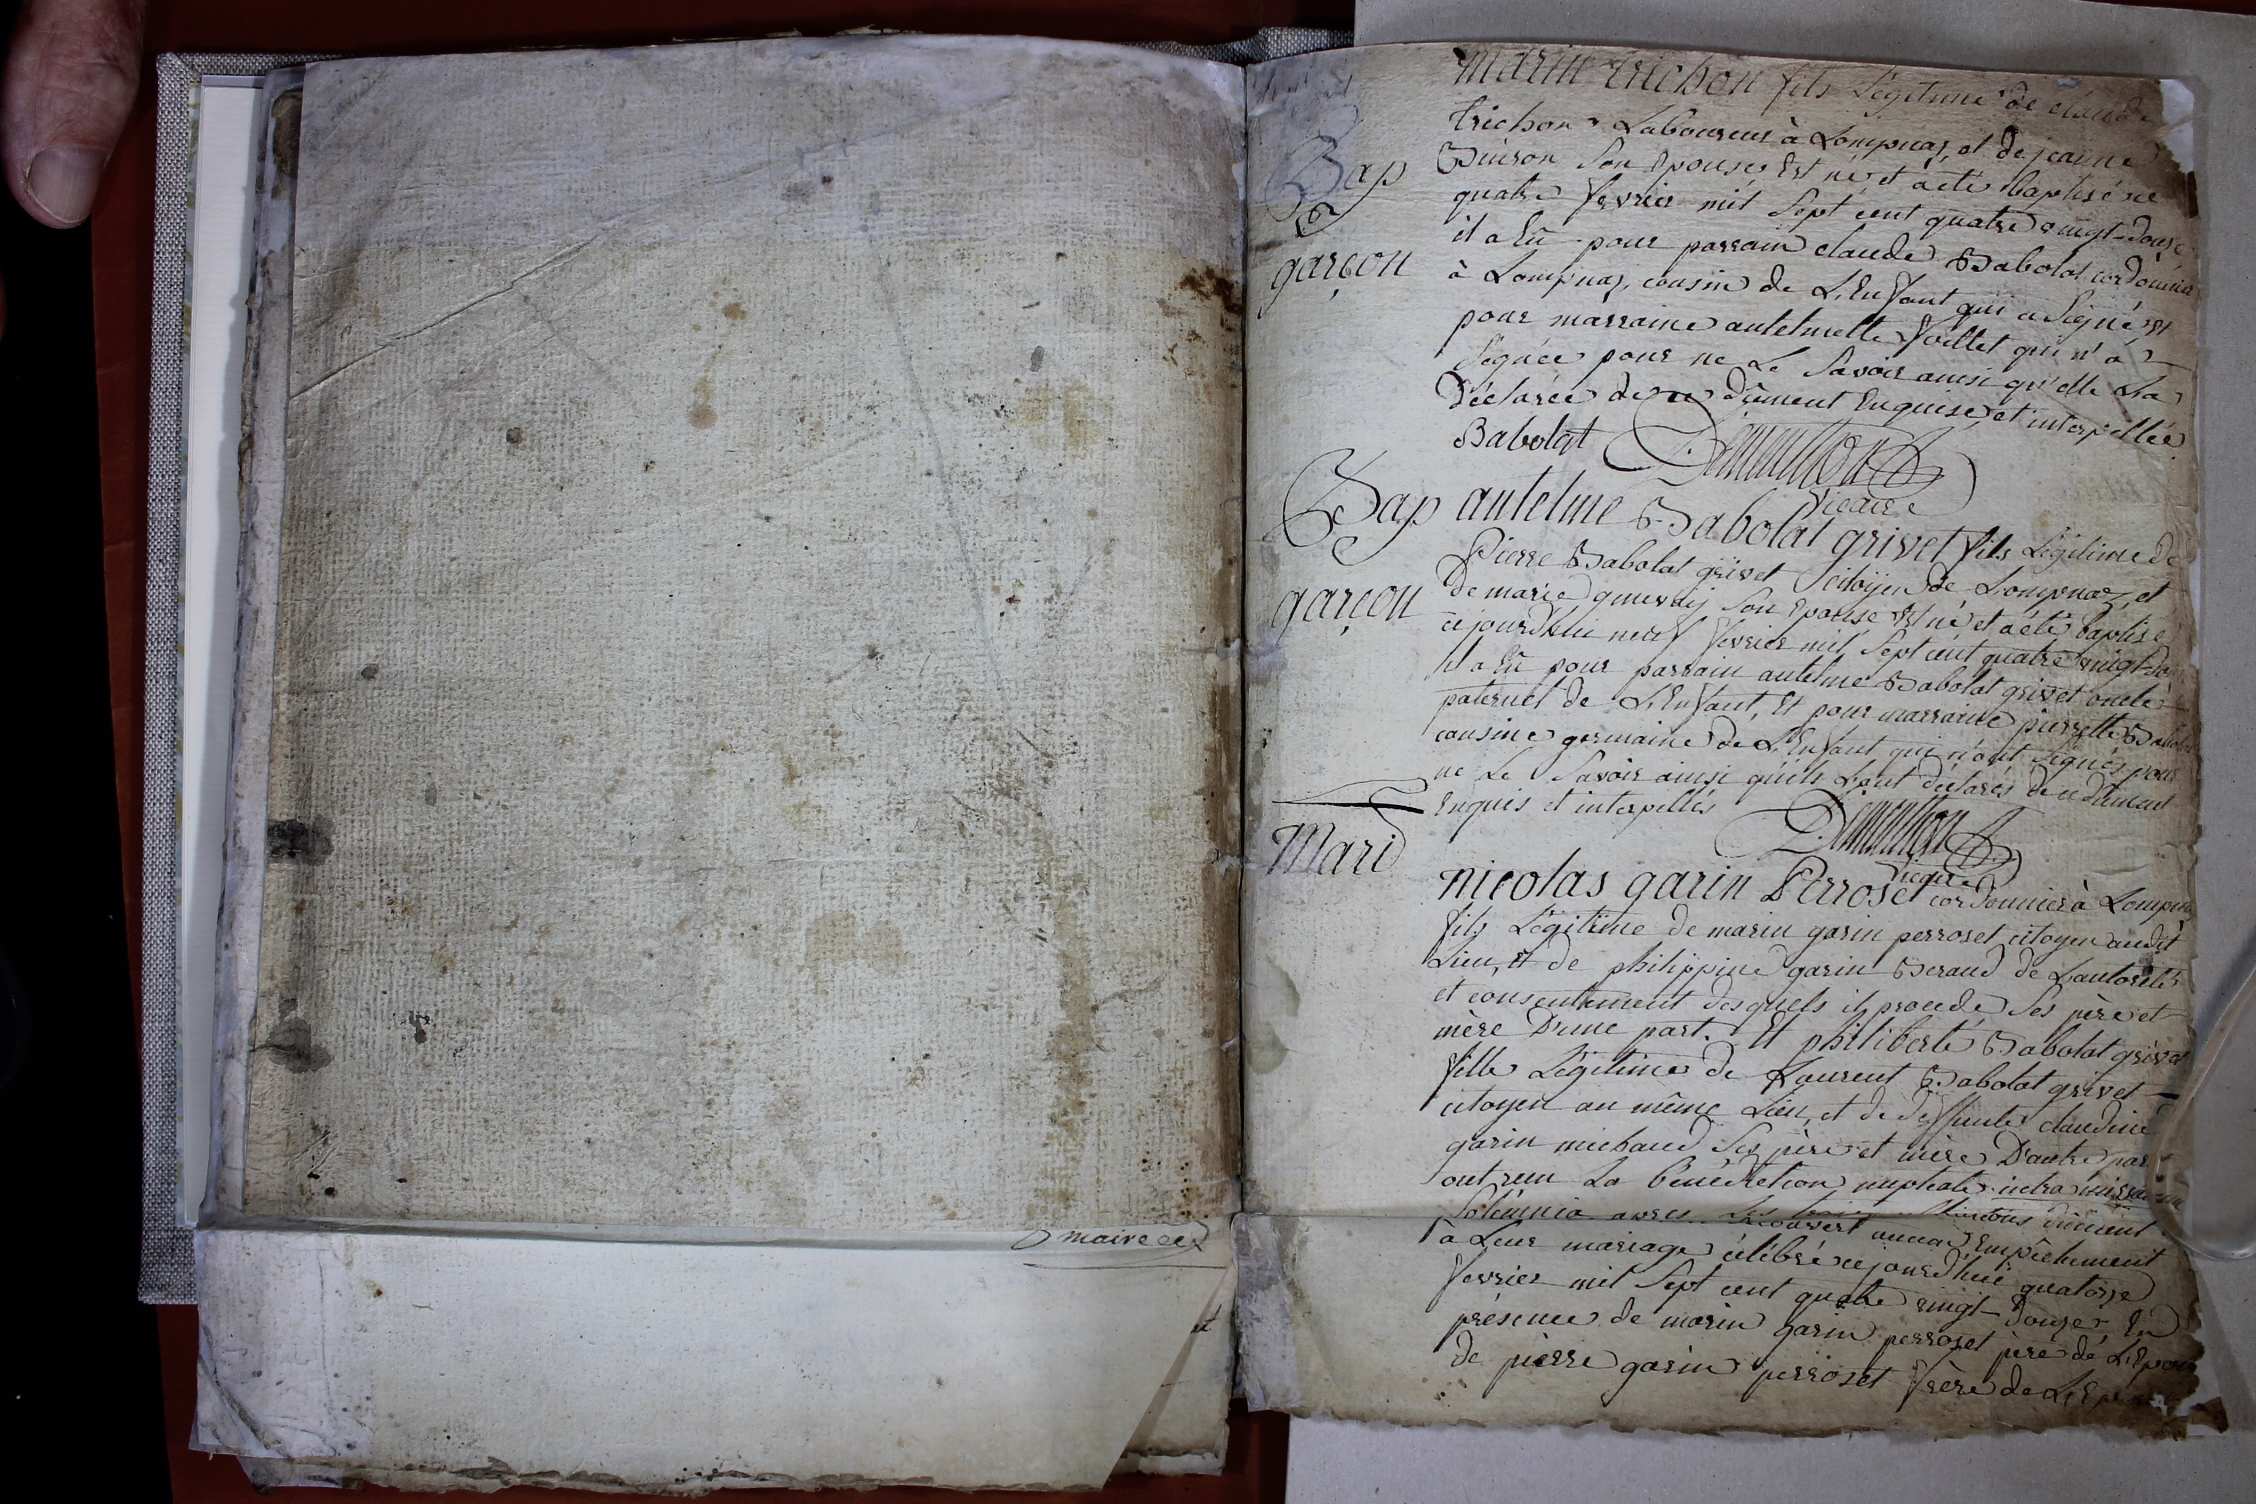 maire
et
Bap
garçon
marin trichon fils Légitime de claude
trichon Laboureur à Lompnaz, et de jeanne
son Epouse, Est né et a été baptisé ce
quatre fevrier mil sept cent quatre vingt-douze
il a Eû pour parrain claude Babolat cordonnier
à Lompnaz, cousin de L'Enfant qui a signé, Et
pour marraine antelmette qui n'a
signée pour ne Le savoir ainsi qu'elle La
déclarée de ce dûment Enquise, et interpellée
Babolat Demonthon
vicaire
Bap
garçon
antelme Babolat grivet fils Légitime de
Pierre Babolat grivet citoijen de Lompnaz, et
de marie son Epouse Est né et a été baptisé
cejourdhui neuf fevrier mil sept cent quatre vingt
il a Eû pour parrain antelme Babolat grivet oncle
paternel de L'Enfant, Et pour marraine pierrette
cousine germaine de L'Enfant qui n'ont signés pour
ne Le savoir ainsi qu'ils L'ont déclarés de ce dûment
Enquis et interpellés Demonthon
vicaire
Mari
nicolas garin Perroset cordonnier à
fils Légitime de marin garin perroset citoyen audit
Lieu, Et de philippine garin Beraud de L'autorité
et consentement desquels il procede ses père et
mère D'une part. Et philiberte Babolat grivet
fille Légitime de Laurent Babolat grivet
citoyen au même Lieu, et de deffunte claudine
garin michaud ses père et mère D'autre part
ont reçu La bénédiction nuptiale intra missarum
solemnia après
découvert aucun Empêchement
à Leur mariage célébré cejourd'hui quatorze
fevrier mil sept cent quatre vingt-douze, En
présence de marin garin perroset père de L'Epoux
de pierre garin perroset frère de